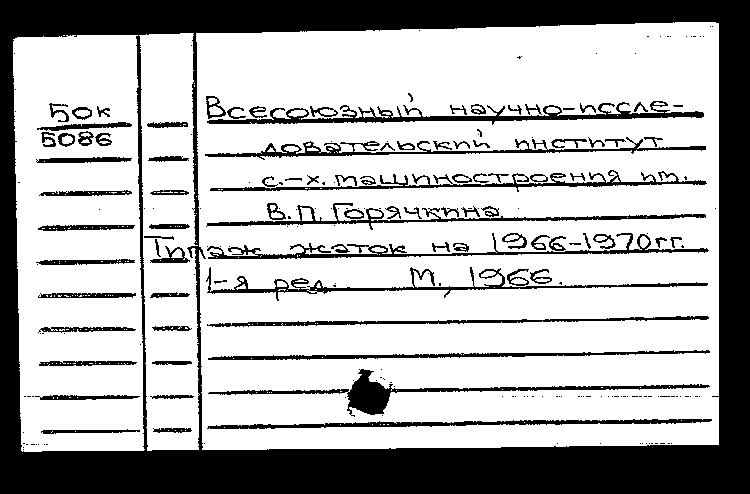 Бок
5086
Всесоюзный научно-иссле-
довательский институт
с.-х. машиностроения им.
В.П. Горячкина
Типаж жаток на 1966-1970гг.
1-я ред. М., 1966.